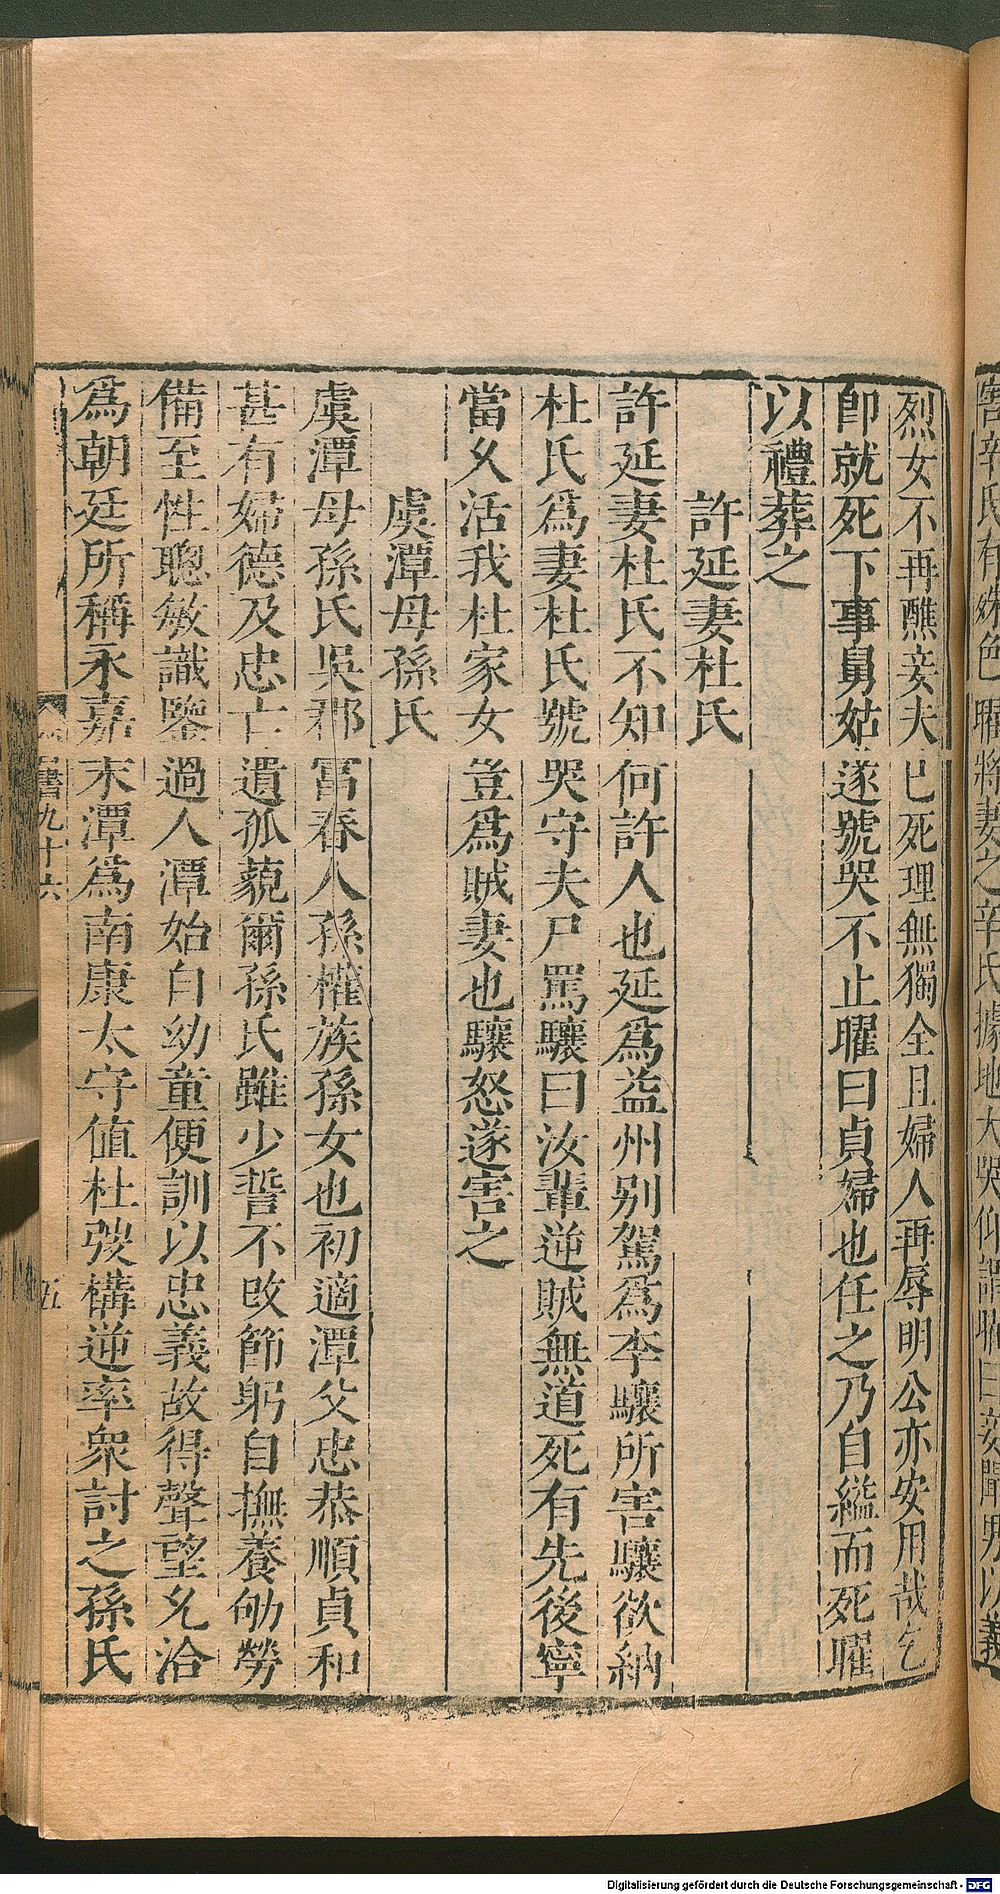 害辛氏有姝色曜將妻之辛氏據地大哭仰謂曜曰妾聞男以義
烈女不再醮妾夫已死理無獨全且婦人再辱明公亦安用哉乞
卽就死下事舅姑遂號哭不止曜曰貞婦也任之乃自縊而死曜
以禮葬之
許延妻杜氏
許延妻杜氏不知何許人也延爲益州别駕爲李驤所害驤欲納
杜氏爲妻杜氏號哭守夫尸罵驤曰汝輩逆賊無道死有先後寧
當久活我杜家女豈爲賊妻也驤怒遂害之
虞潭母孫氏
虞潭母孫氏吳郡富春人孫權族孫女也初適潭父忠恭順貞和
甚有婦德及忠亡遺孤藐爾孫氏雖少誓不改節躬自撫養劬勞
備至性聰敏識鑒過人潭始自幼童便訓以忠義故得聲望允洽
爲朝廷所稱永嘉末潭爲南康太守值杜弢構逆率衆討之孫氏
書九十六
五
Digitalisierung gefördert durch die Deutsche Forschungsgemeinschaft - DFG